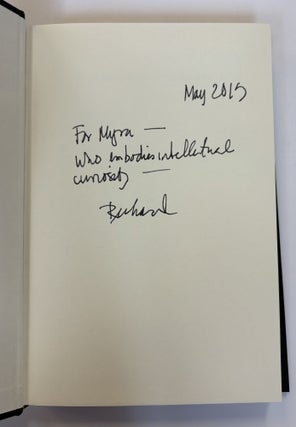 May 2015
For Myra —
who embodies intellectual
curiosity —
Richard